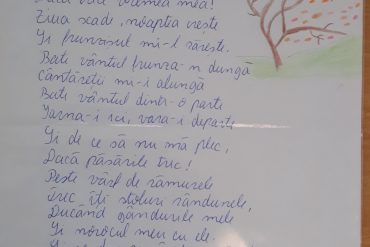 Dacă trece vremea mea!
Ziua scade, noaptea crește
Și frunzișul mi-l rărește.
Bate vântul frunza-n dungă
Cântăreții mi-i alungă
Bate vântul dintr-o parte
Iarna-i ici, vara-i departe
Și de ce să nu mă plec,
Dacă păsările trec!
Peste vârf de rămurele
Trec în stoluri rândunele,
Ducând gândurile mele
Și norocul meu cu ele.